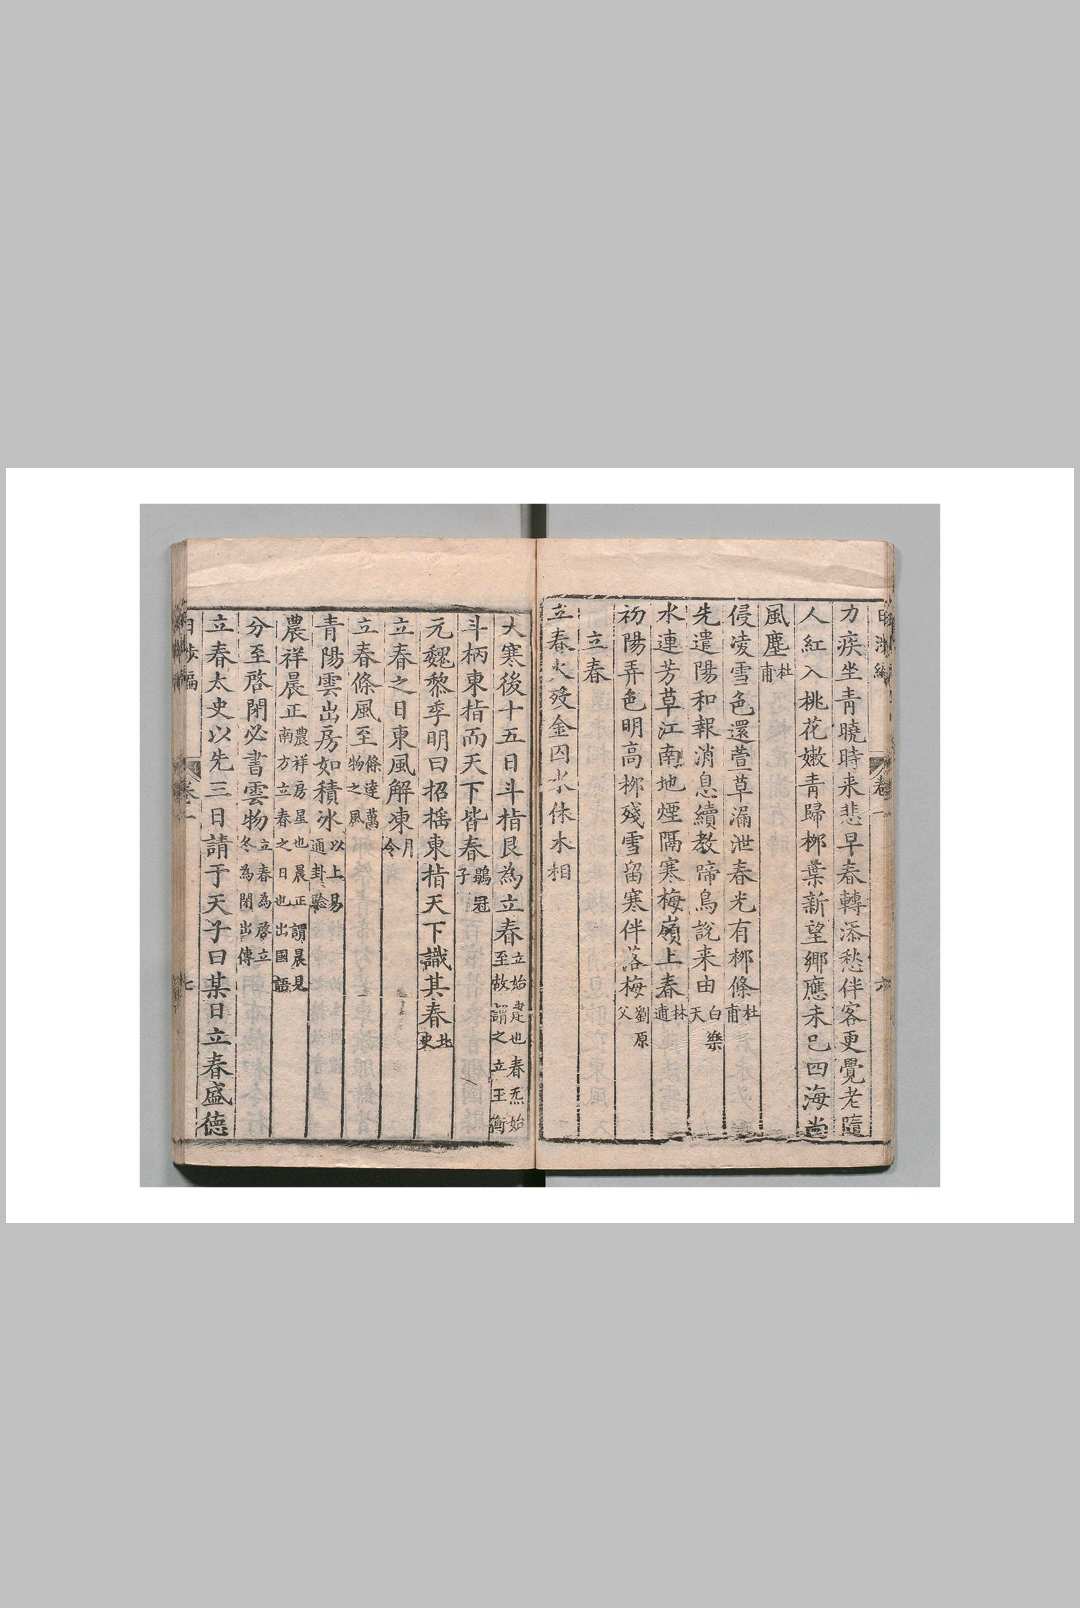 日涉編 卷一 六
力疾坐青曉時来悲早春轉添愁伴客更覺老隨
人紅入桃花嫩青歸栁葉新望鄉應未已四海尚
風塵杜甫
侵凌雪色還萱草漏泄春光有栁條杜甫
先遣陽和報消息續教啼鳥說来由白樂天
水連芳草江南地煙隔寒梅嶺上春林逋
初陽弄色明高栁殘雪留寒伴落梅劉原父
立春
立春火殁金囚水休木相
大寒後十五日斗指艮為立春立始建也春炁始至故謂之立王衡
斗柄東指而天下皆春鶡冠子
元魏黎季明曰招揺東指天下識其春北史
立春之日東風解凍月令
立春條風至條達萬物之風
青陽雲出房如積氷以上易通卦驗
農祥晨正農祥房星也晨正謂晨見南方立春之日也出國語
分至啓閉必書雲物立春為啓立冬為閉出傳
立春太史以先三日請于天子曰某日立春盛德
日涉編 卷一 七